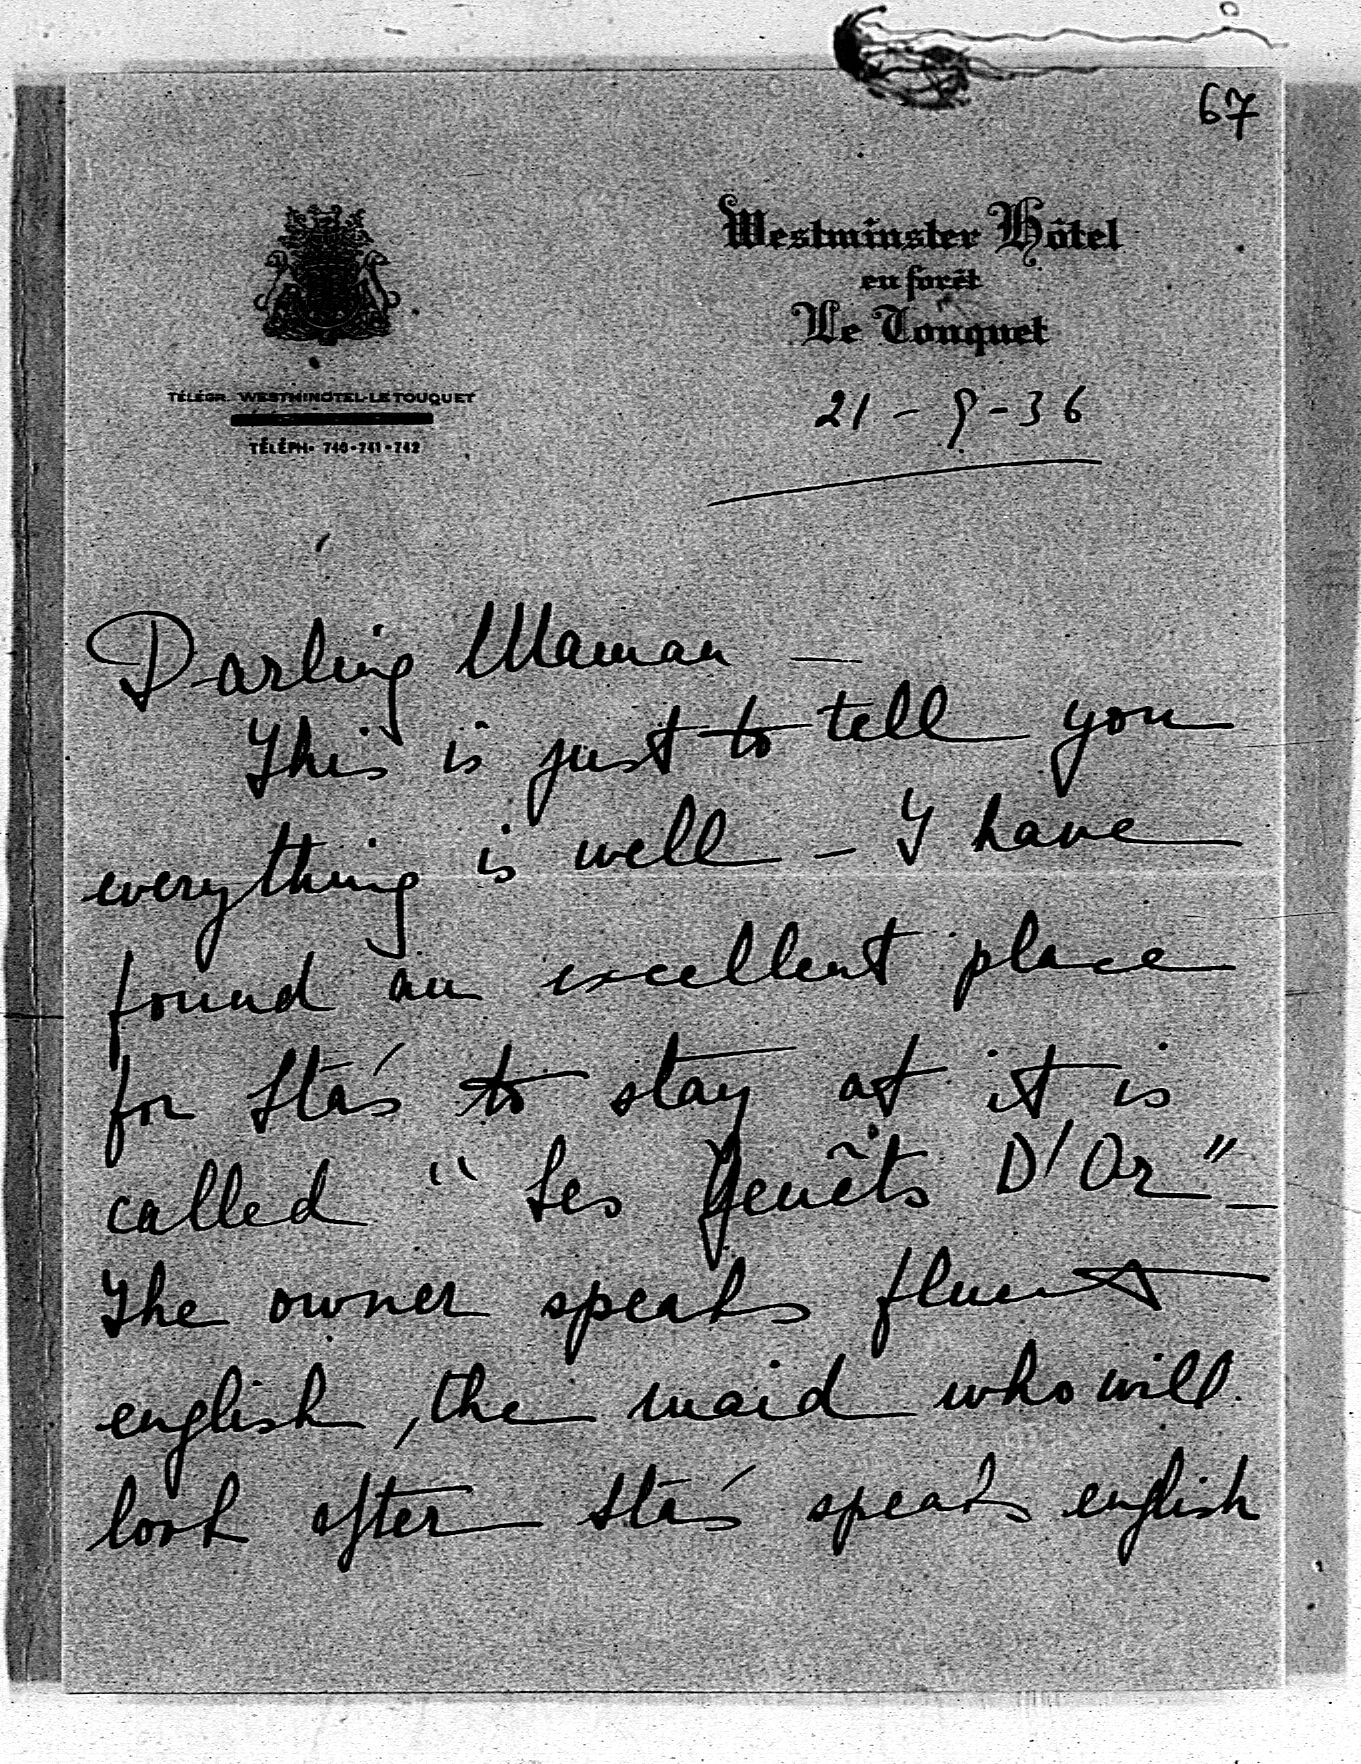 67
Westminster Hôtel
en forêt
Le Touquet
TÉLÉGR. WESTMINOTEL-LE TOUQUET
TÉLÉPH. 740-741-742
21-9-36
Darling Maman —
This is just to tell you
everything is well — I have
found an excellent place
for Stás to stay at it is
called "Les Genêts D'Or" —
The owner speaks fluent
english, the maid who will
look after Stás speaks english